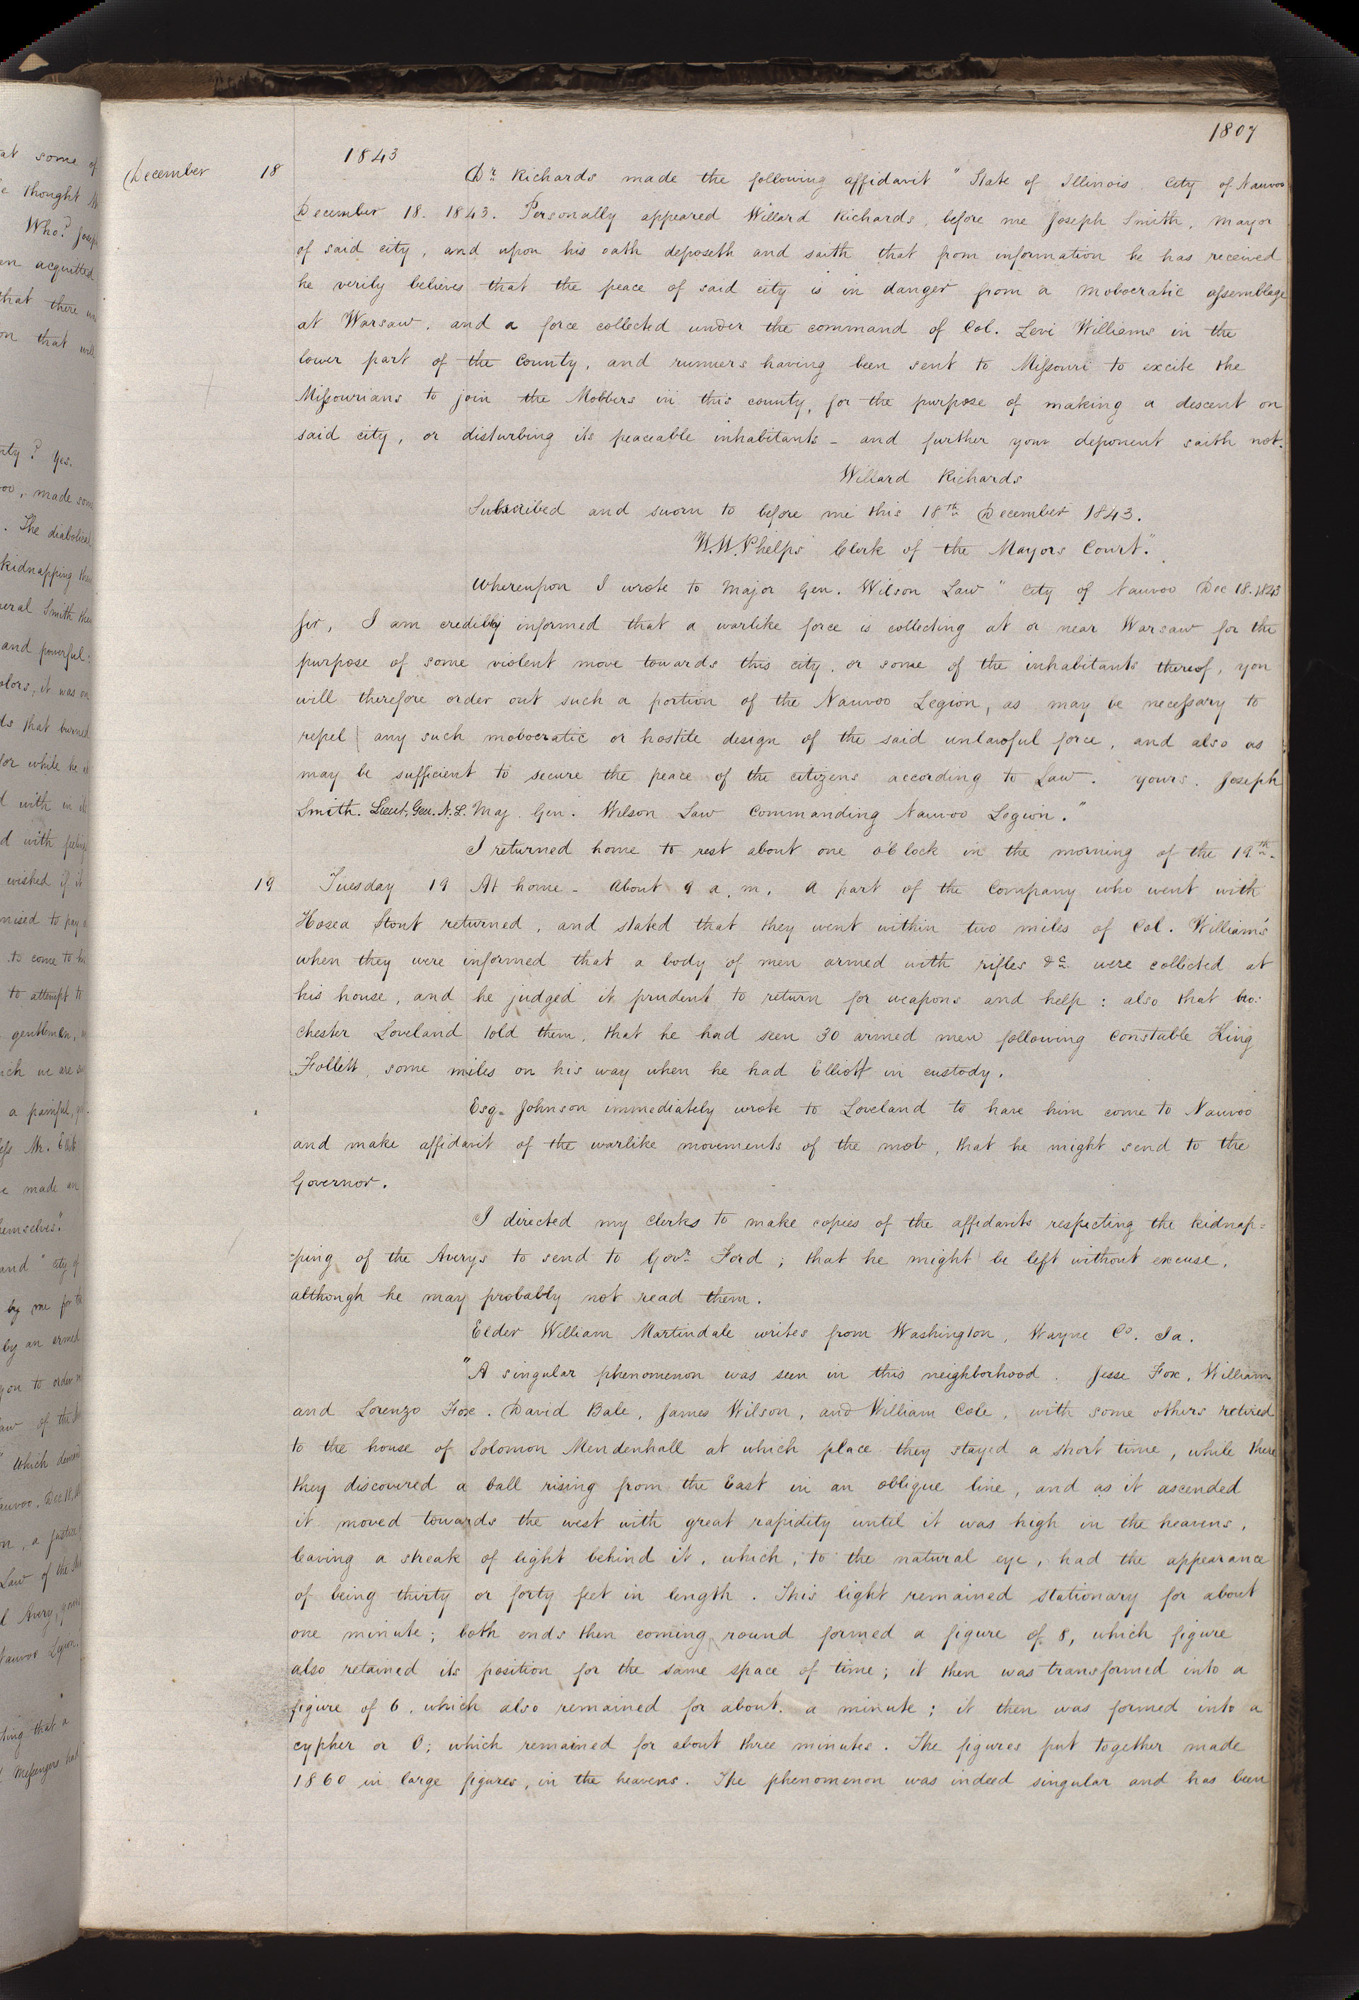 1807
1843
December 18 Dr. Richards made the following affidavit "State of Illinois. City of Nauvoo
December 18. 1843. Personally appeared Willard Richards, before me Joseph Smith, Mayor
of said city, and upon his oath deposeth and saith that from information he has received
he verily believes that the peace of said city is in danger from a mobocratic assemblage
at Warsaw, and a force collected under the command of Col. Levi Williams in the
lower part of the County, and runners having been sent to Missouri to excite the
Missourians to join the Mobbers in this county, for the purpose of making a descent on
said city, or disturbing its peaceable inhabitants - and further your deponent saith not.
Willard Richards
Subscribed and sworn to before me this 18th December 1843.
W. W. Phelps Clerk of the Mayors Court."
Whereupon I wrote to Major Gen. Wilson Law "City of Nauvoo Dec 18. 1843
Sir, I am credibly informed that a warlike force is collecting at or near Warsaw for the
purpose of some violent move towards this city, or some of the inhabitants thereof, you
will therefore order out such a portion of the Nauvoo Legion, as may be necessary to
repel any such mobocratic or hostile design of the said unlawful force, and also as
may be sufficient to secure the peace of the citizens according to Law. yours. Joseph
Smith. Lieut. Gen. N. L. Maj. Gen. Wilson Law Commanding Nauvoo Legion."
I returned home to rest about one o'clock in the morning of the 19th.
19 Tuesday 19 At home - About 9 a.m. a part of the Company who went with
Hosea Stout returned, and stated that they went within two miles of Col. William's
when they were informed that a body of men armed with rifles &c were collected at
his house, and he judged it prudent to return for weapons and help: also that bro:
Chester Loveland told them, that he had seen 30 armed men following constable King
Follett, some miles on his way when he had Elliott in custody.
Esq. Johnson immediately wrote to Loveland to have him come to Nauvoo
and make affidavit of the warlike movements of the mob, that he might send to the
Governor.
I directed my clerks to make copies of the affidavits respecting the kidnap=
=ping of the Averys to send to Govr. Ford; that he might be left without excuse,
although he may probably not read them.
Elder William Martindale writes from Washington, Wayne Co. Ia.
"A singular phenomenon was seen in this neighborhood. Jesse Fox, William
and Lorenzo Fox. David Bale, James Wilson, and William Cole, with some others retired
to the house of Solomon Mendenhall at which place they stayed a short time, while there
they discovered a ball rising from the East in an oblique line, and as it ascended
it moved towards the west with great rapidity until it was high in the heavens,
leaving a streak of light behind it, which, to the natural eye, had the appearance
of being thirty or forty feet in length. This light remained stationary for about
one minute; both ends then coming round formed a figure of 8, which figure
also retained its position for the same space of time; it then was transformed into a
figure of 6, which also remained for about a minute; it then was formed into a
cypher or 0; which remained for about three minutes. The figures put together made
1860 in large figures, in the heavens. The phenomenon was indeed singular and has been